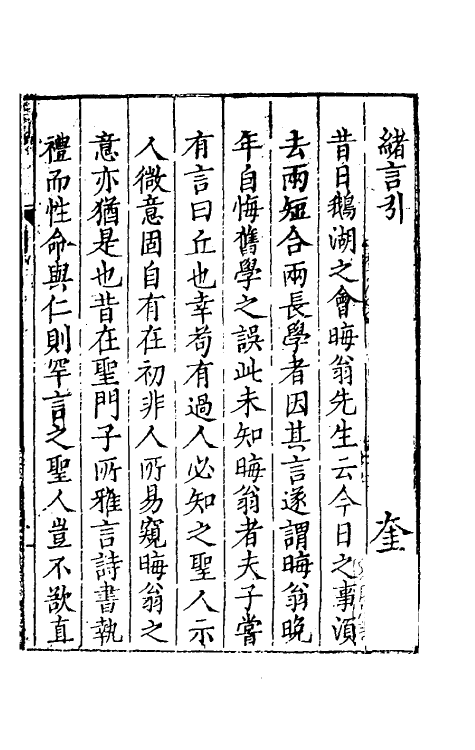 緒言引 奎
昔日鵝湖之會晦翁先生云今日之事湏
去兩短合兩長學者因其言遂謂晦翁晚
年自悔舊學之誤此未知晦翁者夫子嘗
有言曰丘也幸苟有過人必知之聖人示
人微意固自有在初非人所易窺晦翁之
意亦猶是也昔在聖門子所雅言詩書執
禮而性命與仁則罕言之聖人豈不欲直